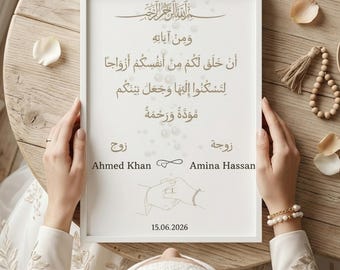 بسم الله الرحمن الرحيم
وَمِنْ آيَاتِهِ
أَنْ خَلَقَ لَكُمْ مِنْ أَنْفُسِكُمْ أَزْوَاجًا
لِتَسْكُنُوا إِلَيْهَا وَجَعَلَ بَيْنَكُمْ
مَوَدَّةً وَرَحْمَةً
زوج زوجة
Ahmed Khan Amina Hassan
15.06.2026